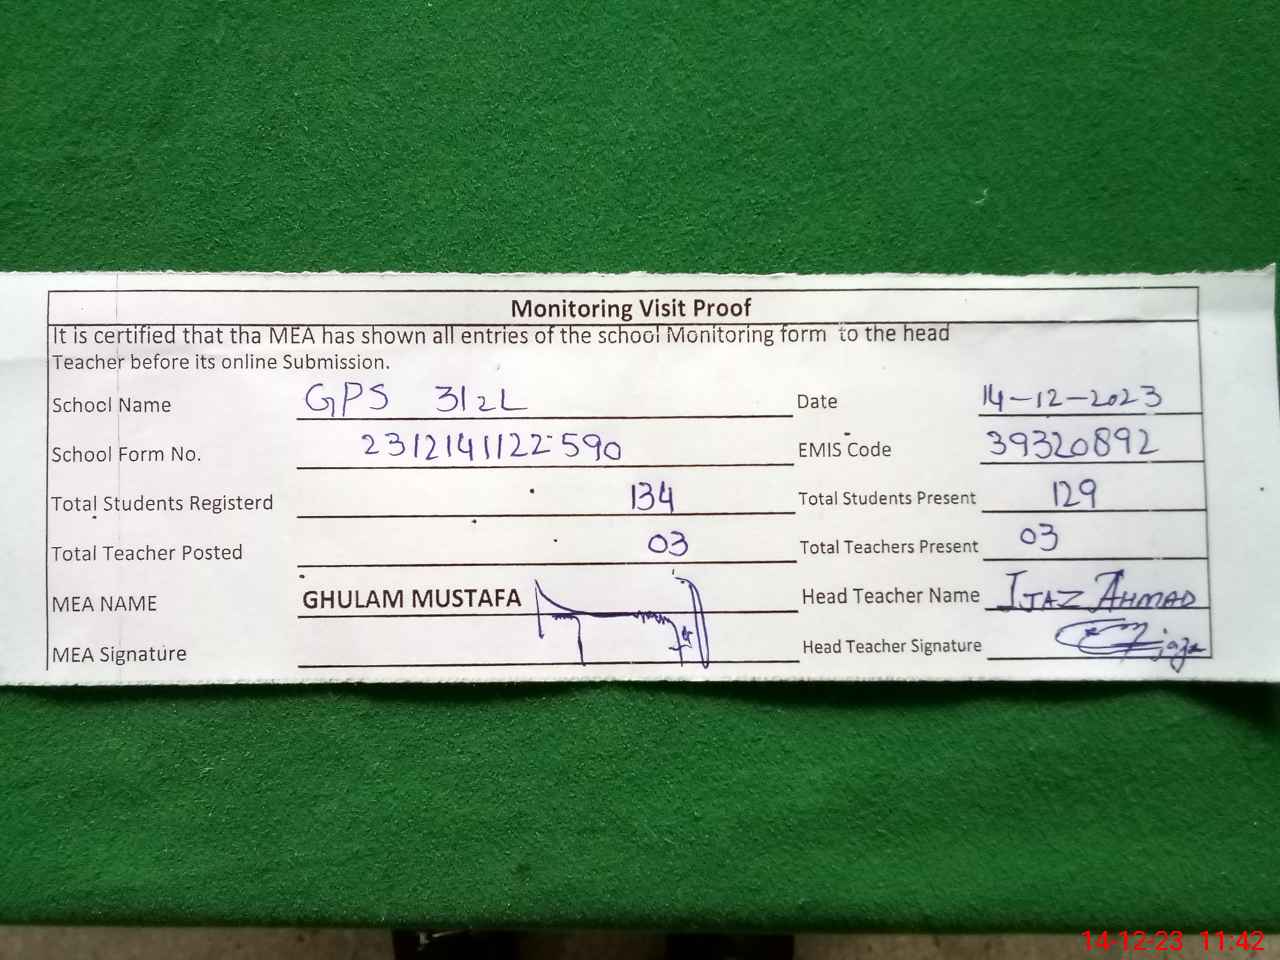 Monitoring Visit Proof
It is certified that tha MEA has shown all entries of the school Monitoring form to the head
Teacher before its online Submission.
School Name GPS 31 2L Date 14-12-2023
School Form No. 2312141122590 EMIS Code 39320892
Total Students Registerd 134 Total Students Present 129
Total Teacher Posted 03 Total Teachers Present 03
MEA NAME GHULAM MUSTAFA Head Teacher Name IJAZ AHMAD
MEA Signature Head Teacher Signature
14-12-23 11:42